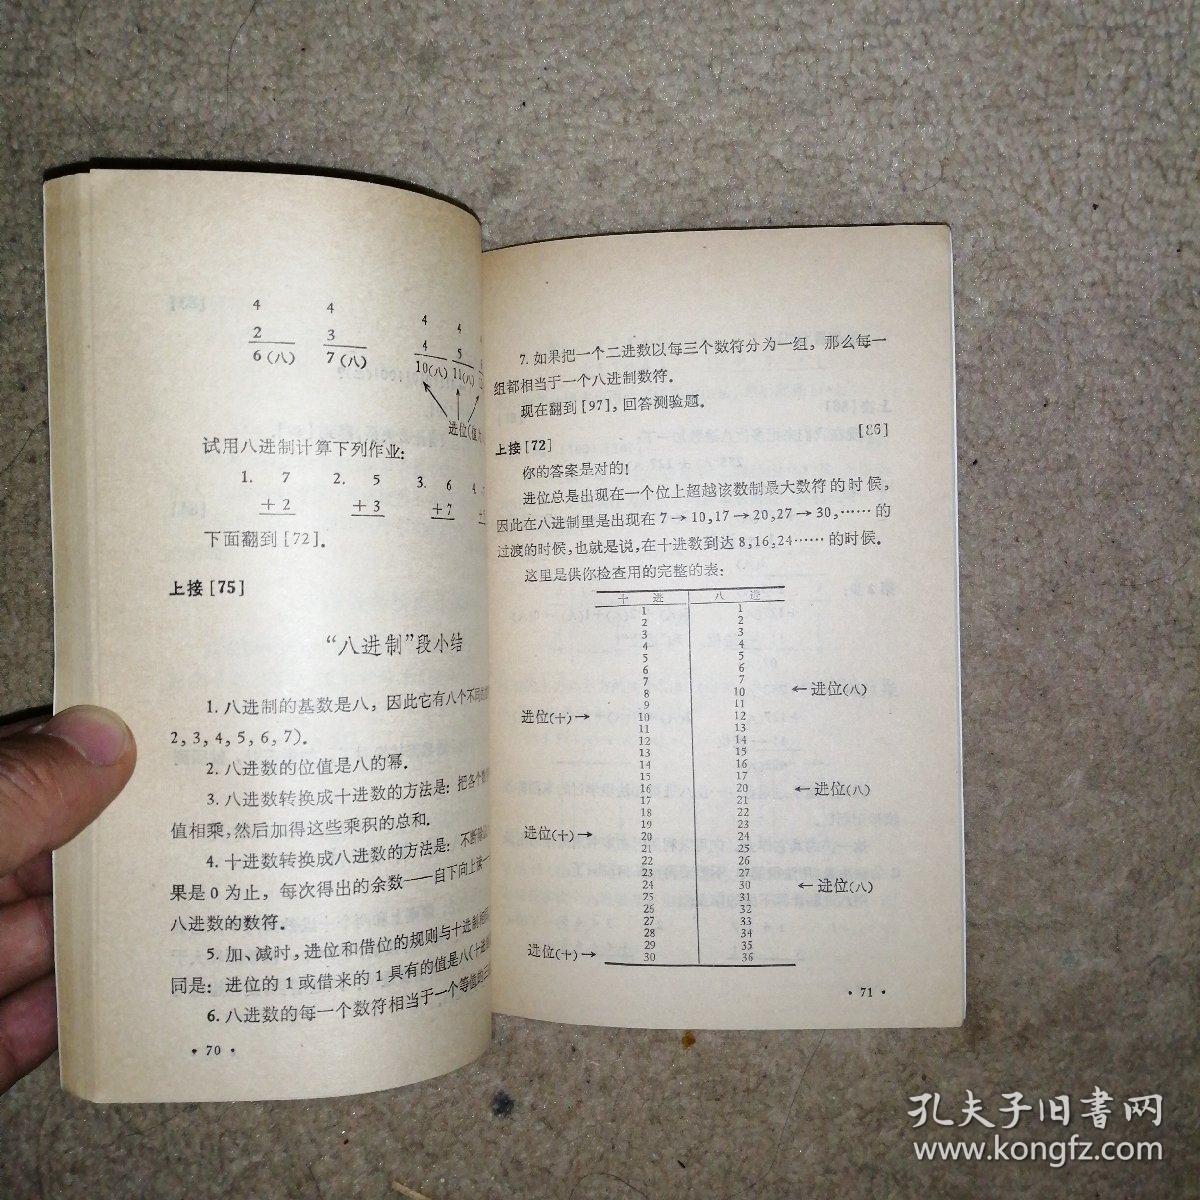 4 4 4 4
2 3 4 5
6(八) 7(八) 10(八) 11(八)
进位(值
试用八进制计算下列作业:
1. 7 2. 5 3. 6 4.
+2 +3 +7
下面翻到[72].
上接[75]
“八进制”段小结
1. 八进制的基数是八, 因此它有八个不同
2, 3, 4, 5, 6, 7).
2. 八进数的位值是八的幂.
3. 八进数转换成十进数的方法是: 把各个
值相乘, 然后加得这些乘积的总和.
4. 十进数转换成八进数的方法是: 不断除
果是 0 为止, 每次得出的余数——自下向上读
八进数的数符.
5. 加、减时, 进位和借位的规则与十进制相
同是: 进位的 1 或借来的 1 具有的值是八(十进
6. 八进数的每一个数符相当于一个等值的三
• 70 •
7. 如果把一个二进数以每三个数符分为一组, 那么每一
组都相当于一个八进制数符.
现在翻到[97], 回答测验题.
上接[72] [86]
你的答案是对的!
进位总是出现在一个位上超越该数制最大数符的时候,
因此在八进制里是出现在 7→10, 17→20, 27→30, ……的
过渡的时候, 也就是说, 在十进数到达 8, 16, 24……的时候.
这里是供你检查用的完整的表:
十进 八进
1 1
2 2
3 3
4 4
5 5
6 6
7 7
8 10 ←进位(八)
9 11
进位(十)→ 10 12
11 13
12 14
13 15
14 16
15 17
16 20 ←进位(八)
17 21
18 22
19 23
进位(十)→ 20 24
21 25
22 26
23 27
24 30 ←进位(八)
25 31
26 32
27 33
28 34
29 35
进位(十)→ 30 36
• 71 •
孔夫子旧书网
www.kongfz.com